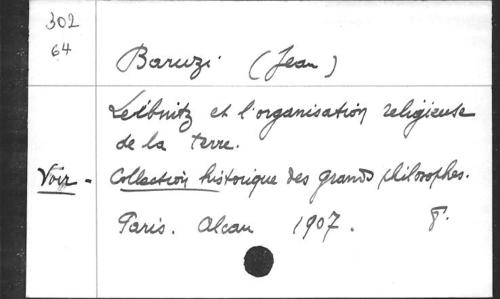 302
64
Baruzi (Jean)
Leibnitz et l'organisation religieuse
de la terre.
Voir - Collection historique des grands philosophes.
Paris. Alcan 1907. 8°.